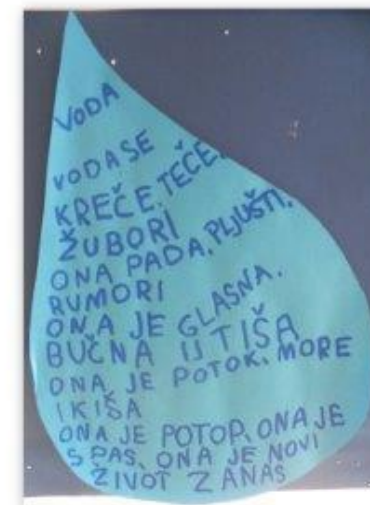 VODA
VODA SE
KREČE, TEČE,
ŽUBORI
ONA PADA, PLJUŠTI,
RUMORI
ONA JE GLASNA,
BUČNA IJ TIŠA
ONA JE POTOK, MORE
I KIŠA
ONA JE POTOP, ONA JE
SPAS, ONA JE NOVI
ŽIVOT ZA NAS